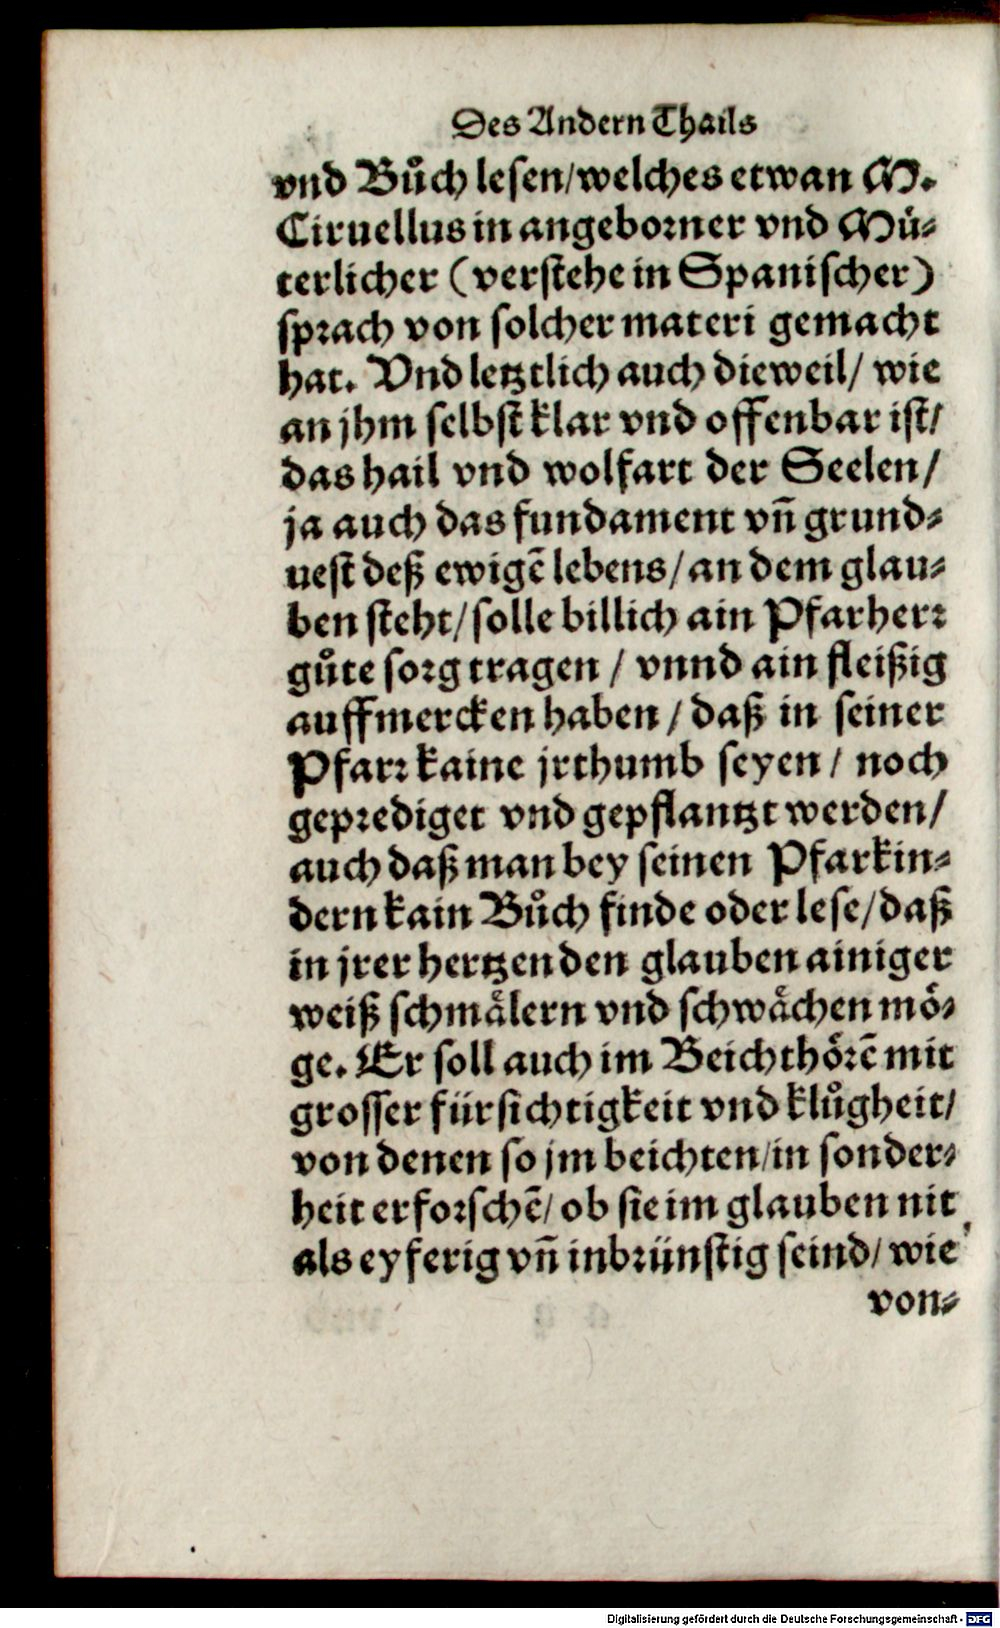 Des Andern Thails
vnd Bůch lesen/welches etwan M.
Ciruellus in angeborner vnd Mů⸗
terlicher (verstehe in Spanischer)
sprach von solcher materi gemacht
hat. Vnd letztlich auch dieweil/ wie
an jhm selbst klar vnd offenbar ist/
das hail vnd wolfart der Seelen/
ja auch das fundament vn̄ grund⸗
uest deß ewigē lebens/an dem glau⸗
ben steht/solle billich ain Pfarherr
gůte sorg tragen / vnnd ain fleißig
auffmercken haben / daß in seiner
Pfarr kaine jrthumb seyen / noch
geprediget vnd gepflantzt werden/
auch daß man bey seinen Pfarkin⸗
dern kain Bůch finde oder lese/daß
in jrer hertzen den glauben ainiger
weiß schmälern vnd schwächen mö⸗
ge. Er soll auch im Beichthörē mit
grosser fürsichtigkeit vnd klůgheit/
von denen so jm beichten/in sonder⸗
heit erforschē/ ob sie im glauben nit
als eyferig vn̄ inbrünstig seind/ wie
von⸗
Digitalisierung gefördert durch die Deutsche Forschungsgemeinschaft - DFG